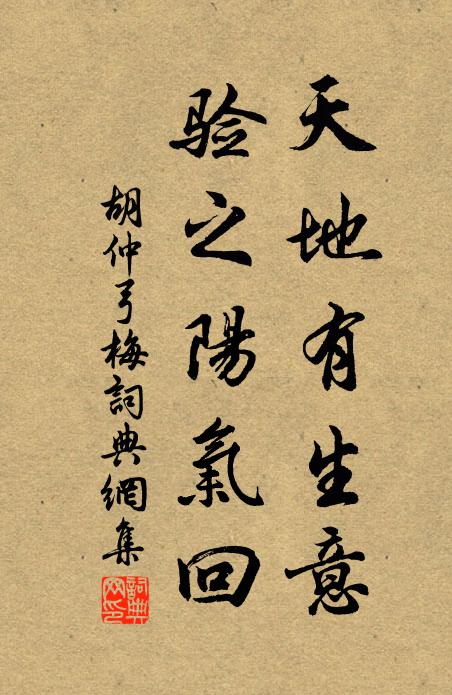 天地有生意
验之陽氣回
胡仲弓梅詞典網集
詞典網印